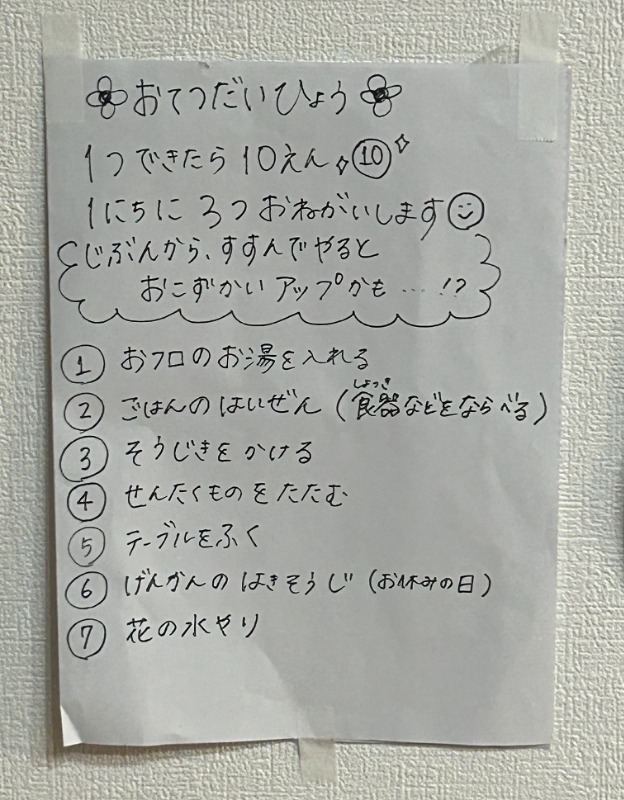 おてつだいひょう
1つできたら10えん 10
1にちに 3つ おねがいします
じぶんから、すすんでやると
おこずかい アップかも…!?
① おフロのお湯を入れる
② ごはんの はいぜん (食器などをならべる)
しょっき
③ そうじきを かける
④ せんたくものをたたむ
⑤ テーブルをふく
⑥ げんかんの はきそうじ (お休みの日)
⑦ 花の水やり